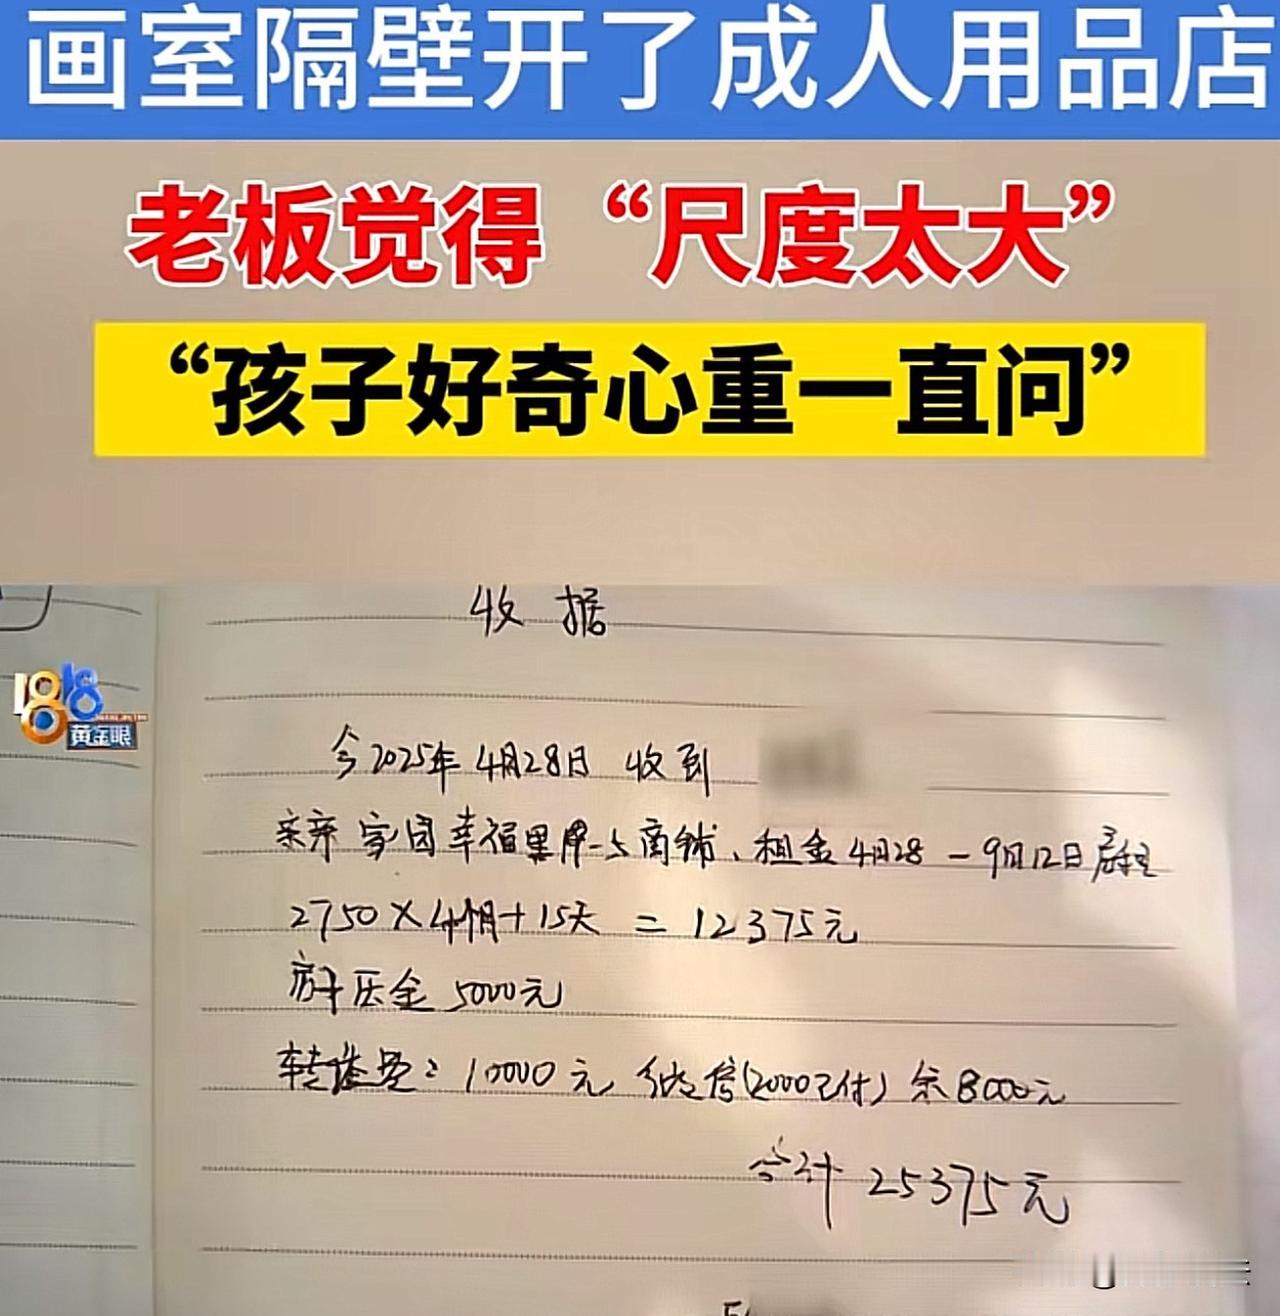 画室隔壁开了成人用品店
老板觉得“尺度太大”
“孩子好奇心重一直问”
收据
1818
黄金眼
今2025年4月28日 收到
亲亲家园幸福里 商铺、租金4月28-9月12日房租
2750×4个月+15天=12375元
押金5000元
转让费:10000元 (2000已付) 余8000元
合计 25375元